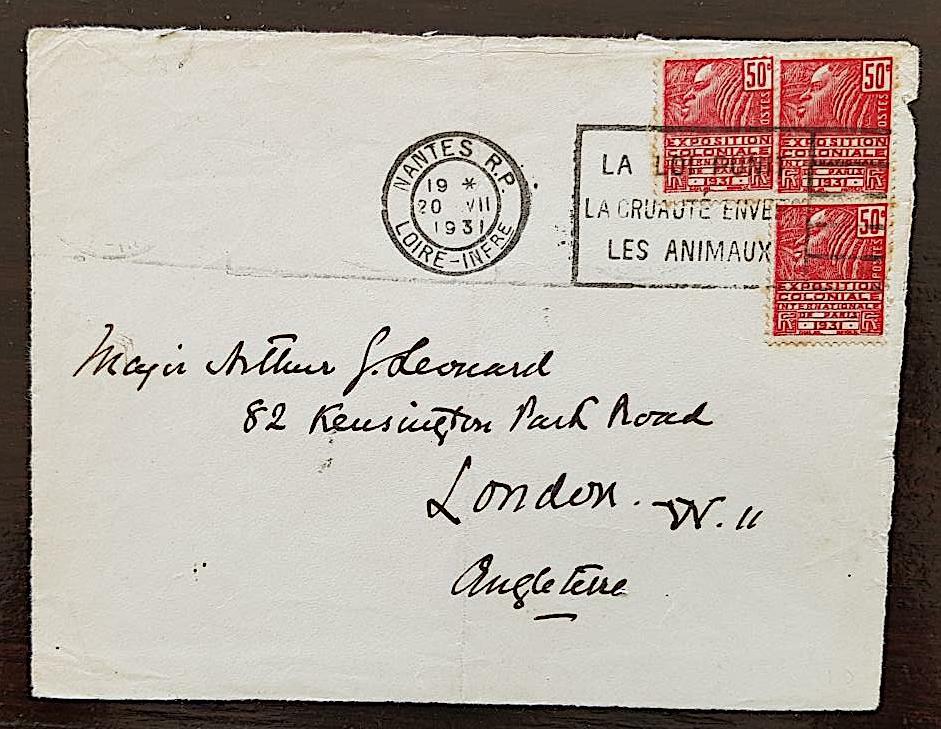 50c
POSTES
EXPOSITION
COLONIALE
INTERNATIONALE
DE PARIS
RF 1931 RF
50c
POSTES
EXPOSITION
COLONIALE
INTERNATIONALE
DE PARIS
RF 1931 RF
50c
POSTES
EXPOSITION
COLONIALE
INTERNATIONALE
DE PARIS
RF 1931 RF
NANTES R.P.
19 *
20 VII
1931
LOIRE-INFRE
LA LOI PUNIT
LA CRUAUTÉ ENVE
LES ANIMAUX
Major Arthur G. Leonard
82 Kensington Park Road
London. W. 11
Angleterre